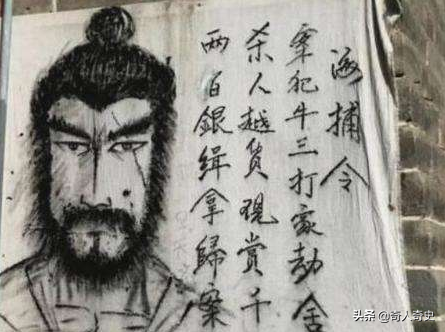 海捕令
犯牛三打家劫舍
杀人越货現賞千
两百銀缉拿歸案
头条 @奇人奇史